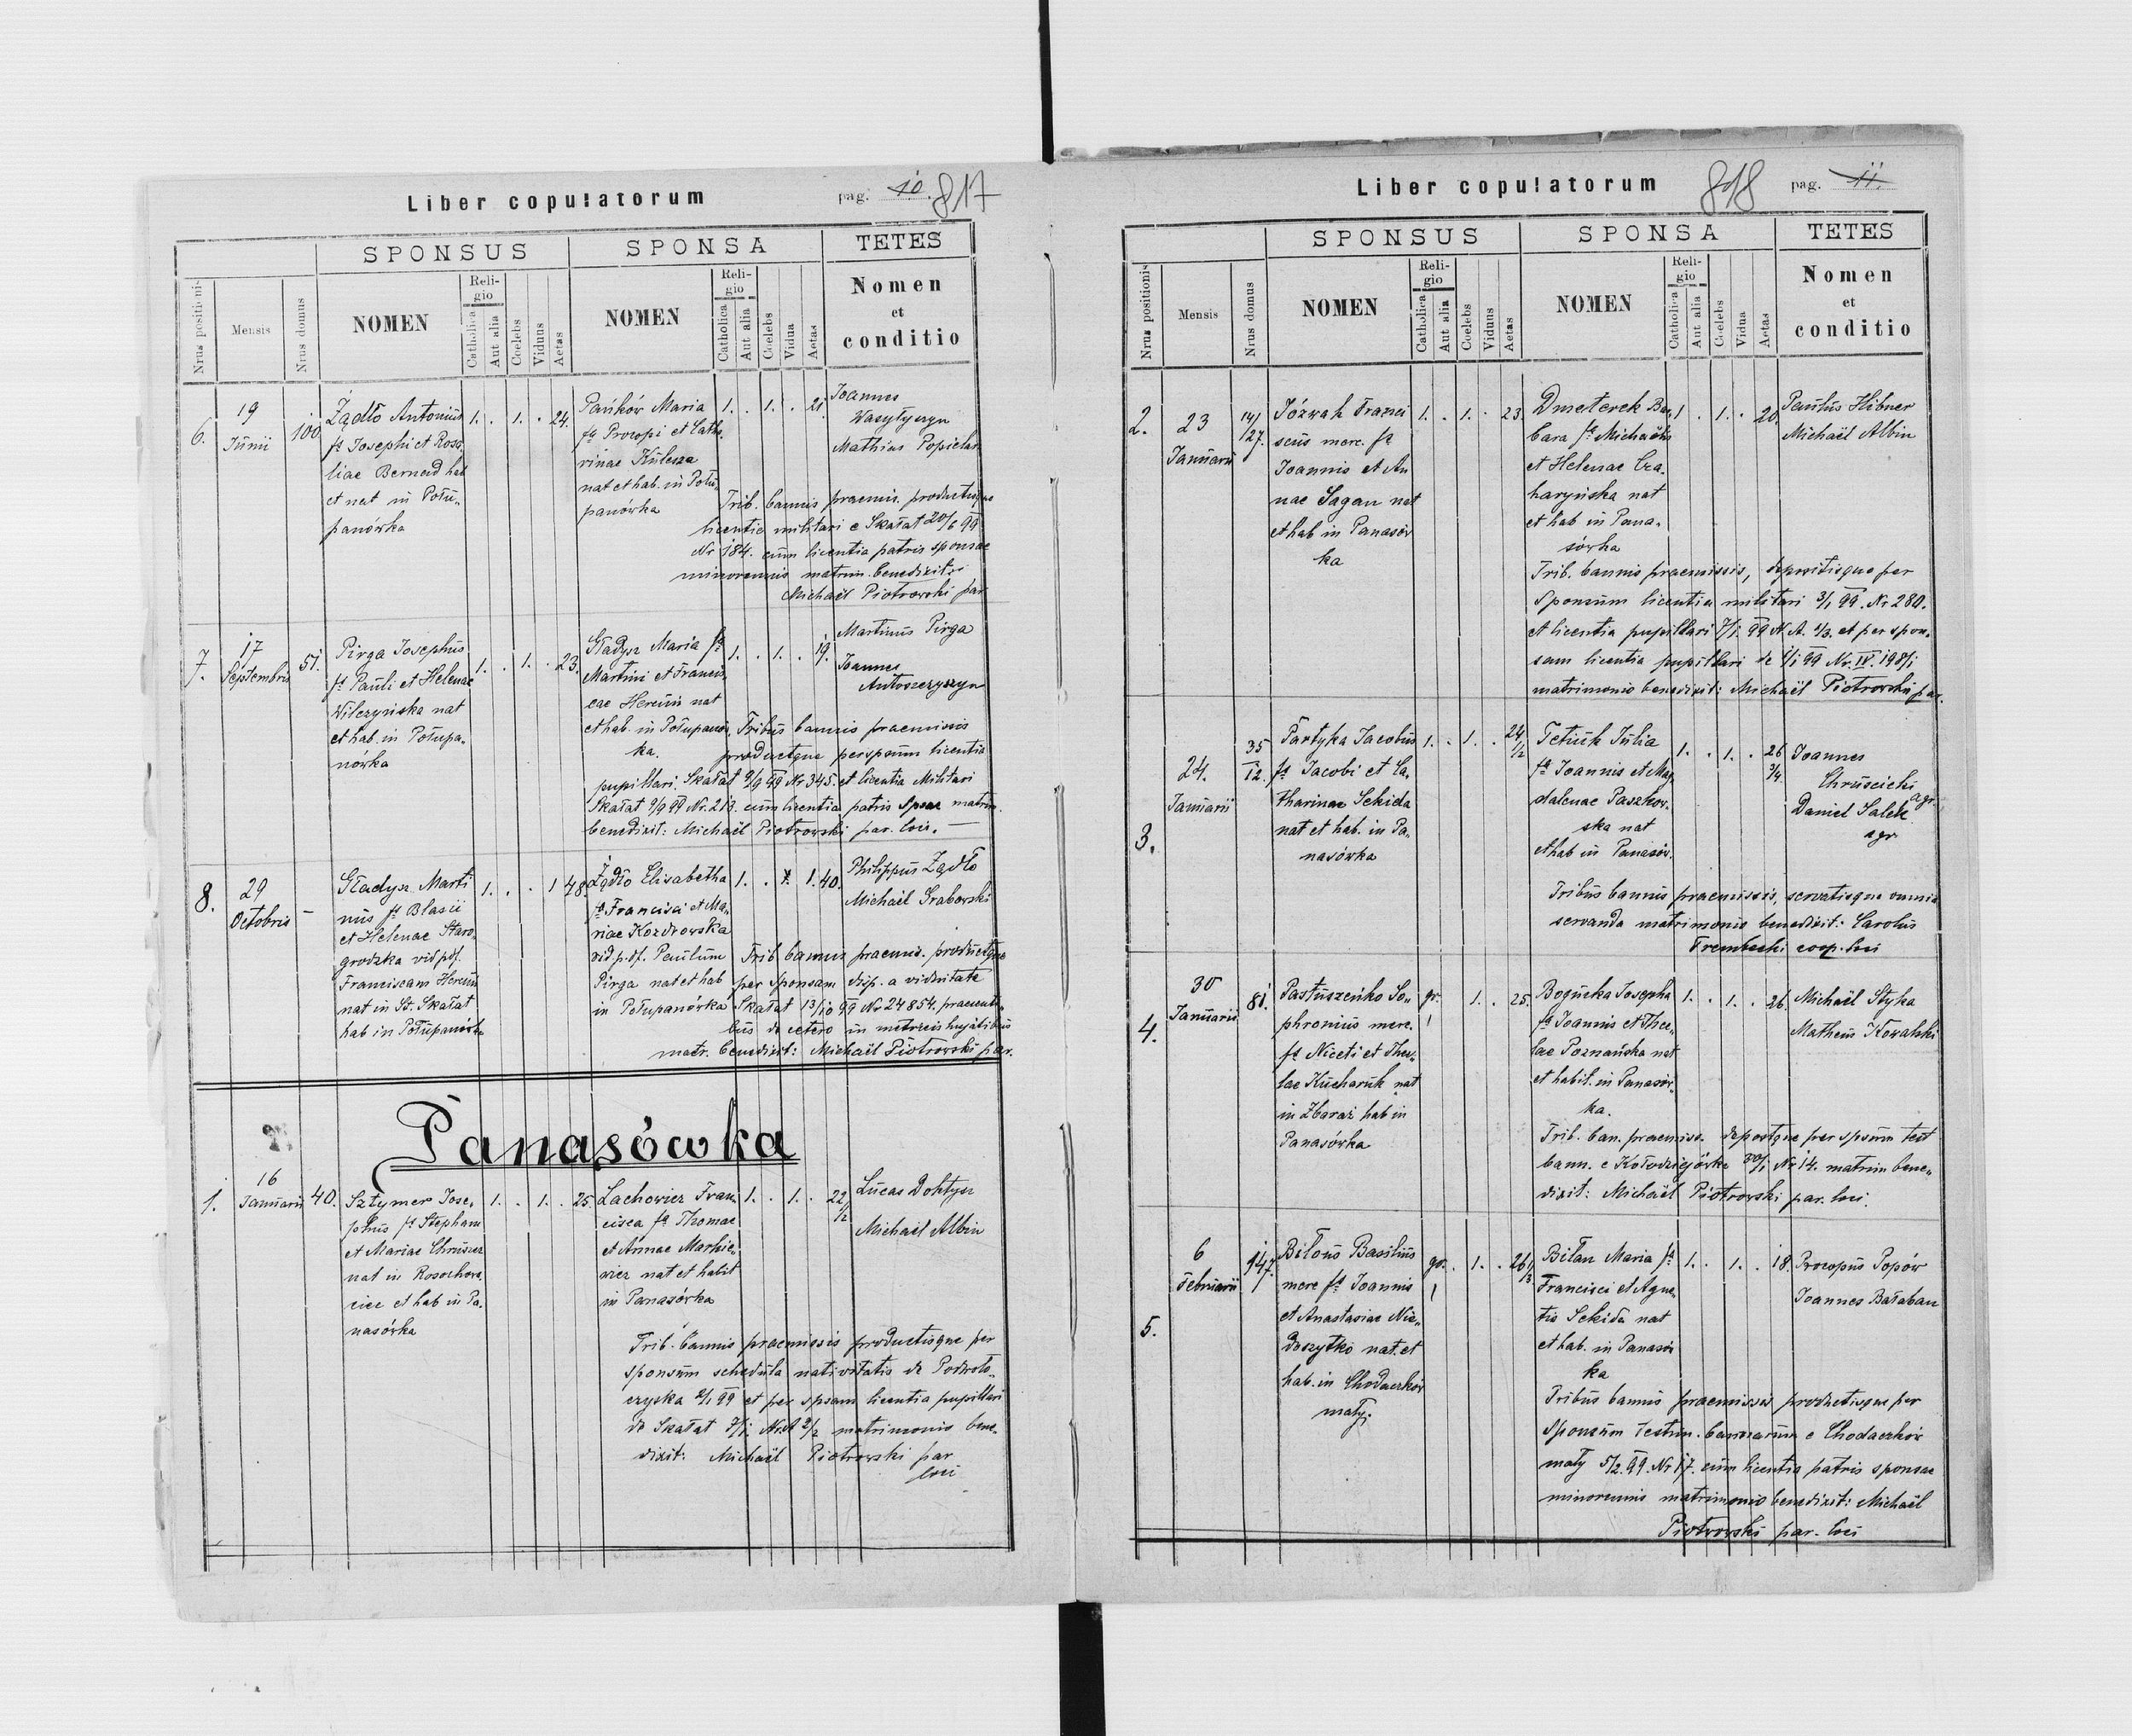 Liber copulatorum
pag. 10. 817
SPONSUS
SPONSA
TETES
Nrus positionis
Mensis
Nrus domus
NOMEN
Religio
Catholica
Aut alia
Coelebs
Viduus
Aetas
NOMEN
Religio
Catholica
Aut alia
Coelebs
Vidua
Aetas
Nomen
et
conditio
6.
19
Junii
100.
Żądło Antonius
fs Josephi et Rosa
liae Bernad hab
et nat in Połu„
panówka
1. . 1. . 24.
Pańków Maria
fa Procopi et Catha„
rinae Kulesza
nat et hab. in Połu„
panówka
1. . 1. . 21.
Joannes
Wasyłyszyn
Mathias Popielar
Trib. bannis praemis. productisque
licentia militari e Skałat 20/6 99
Nr 184. cum licentia patris sponsae
minorennis matrim. benedixit:
Michaël Piotrowski par
7.
17
Septembris
51.
Pirga Josephus
fs Pauli et Helenae
Wilczyńska nat
et hab. in Połupa„
nówka
1. . 1. . 23.
Gładysz Maria fa
Martini et Francis„
cae Hereún nat
et hab. in Połupanów„
ka.
1. . 1. . 19.
Martinus Pirga
Joannes
Antoszczyszyn
Tribus bannis praemissis
productque per spsum licentia
pupillari. Skałat 9/9 99 Nr 345. et licentia Militari
Skałat 9/9 99 Nr. 213. cum licentia patris spsae matrim.
benedixit: Michaël Piotrowski par. loci.
8.
29
Octobris
–
Gładysz Marti
nus fs Blasii
et Helenae Staro„
grodzka vid p.df.
Franciscam Hereún
nat in St. Skałat
hab in Połupanówka
1. . . 1 48.
Żądło Elisabetha
fa Francisci et Ma„
riae Kozdrowska
vid p.df. Paulum
Pirga nat et hab
in Połupanówka
1. . . 1. 40.
Philippus Żądło
Michaël Grabowski
Trib bannis praemis. productque
per sponsam disp. a viduitate
Skałat 13/10 99 Nr 24854. praesenti„
bus de cetero in metricis hujatibus
matr. benedixit: Michaël Piotrowski par.
Panasówka
1.
16
Januarii
40.
Sztymer Jose„
phus fs Stephani
et Mariae Chruszcz
nat in Rosochowa
ciec et hab in Pa„
nasówka
1. . 1. . 25.
Lachowicz Fran„
cisca fa Thomae
et Annae Markie„
wicz nat et habit
in Panasówka
1. . 1. . 22 1/2
Lucas Dohtysz
Michaël Albin
Trib. bannis praemissis productisque per
sponsum schedula nativitatis de Podwoło„
czyska 2/1 99 et per spsam licentia pupillari
de Skałat 7/1 Nr.A 2/2 matrimonio bene„
dixit: Michaël Piotrowski par
loci
Liber copulatorum
818 pag. 11.
SPONSUS
SPONSA
TETES
Nrus positionis
Mensis
Nrus domus
NOMEN
Religio
Catholica
Aut alia
Coelebs
Viduus
Aetas
NOMEN
Religio
Catholica
Aut alia
Coelebs
Vidua
Aetas
Nomen
et
conditio
2.
23
Januarii
14/
127.
Józwak Franci
scus merc. fs
Joannis et An
nae Sagan nat
et hab in Panasów
ka
1. . 1. . 23.
Dmeterek Bar„
bara fa Michaëlis
et Helenae Cza„
haryńska nat
et hab in Pana„
sówka
1 . 1. . 20.
Paulus Hibner
Michaël Albin
Trib. bannis praemissis, depositisque per
sponsum licentia militari 3/1 99. Nr 280.
et licentia pupillari 7/1. 99 N.A. 1/3. et per spon„
sam licentia pupillari de 1/1 99 Nr. IV. 198/1
matrimonio benedixit: Michaël Piotrowski par.
3.
24.
Januarii
35
12.
Partyka Jacobus
fs Jacobi et Ca„
tharinae Sekida
nat et hab. in Pa„
nasówka
1. . 1. . 24 1/2
Tetiuk Julia
fa Joannis et Mag„
dalenae Paszkow„
ska nat
et hab in Panasów.
1. . 1. . 26 3/4
Joannes
Chruścicki
agr.
Daniel Salek
agr
Tribus bannis praemissis, servatisque omnia
servanda matrimonio benedixit: Carolus
Trembecki coop. loci
4.
30
Januarii
81.
Pastuszeńko So„
phronius merc.
fs Niceti et Thec„
lae Kucharuk nat
in Zbaraż hab in
Panasówka
gr. 1 1. . 25.
Bogucka Josepha
fa Joannis et Thec„
lae Poznańska nat
et habit. in Panasów„
ka.
1. . 1. . 26.
Michaël Styka
Matheus Kowalski
Trib. ban. praemiss. depostque per spsum test
bann. e Kołodziejówka 30/1 Nr 14. matrim bene„
dixit: Michaël Piotrowski par. loci.
5.
6
Februarii
147.
Biłous Basilius
merc fs Joannis
et Anastasiae Nie„
doszytko nat. et
hab. in Chodaczków
mały.
gr. 1 . 1. . 26 1/3
Bilan Maria fa
Francisci et Agne„
tis Sekida nat
et hab. in Panasów
ka
1. . 1. . 18.
Procopius Popów
Joannes Bałaban
Tribus bannis praemissis productisque per
sponsum Testim. bannarum e Chodaczków
mały 5/2. 99. Nr 17. cum licentia patris sponsae
minorennis matrimonio benedixit: Michaël
Piotrowski par. loci